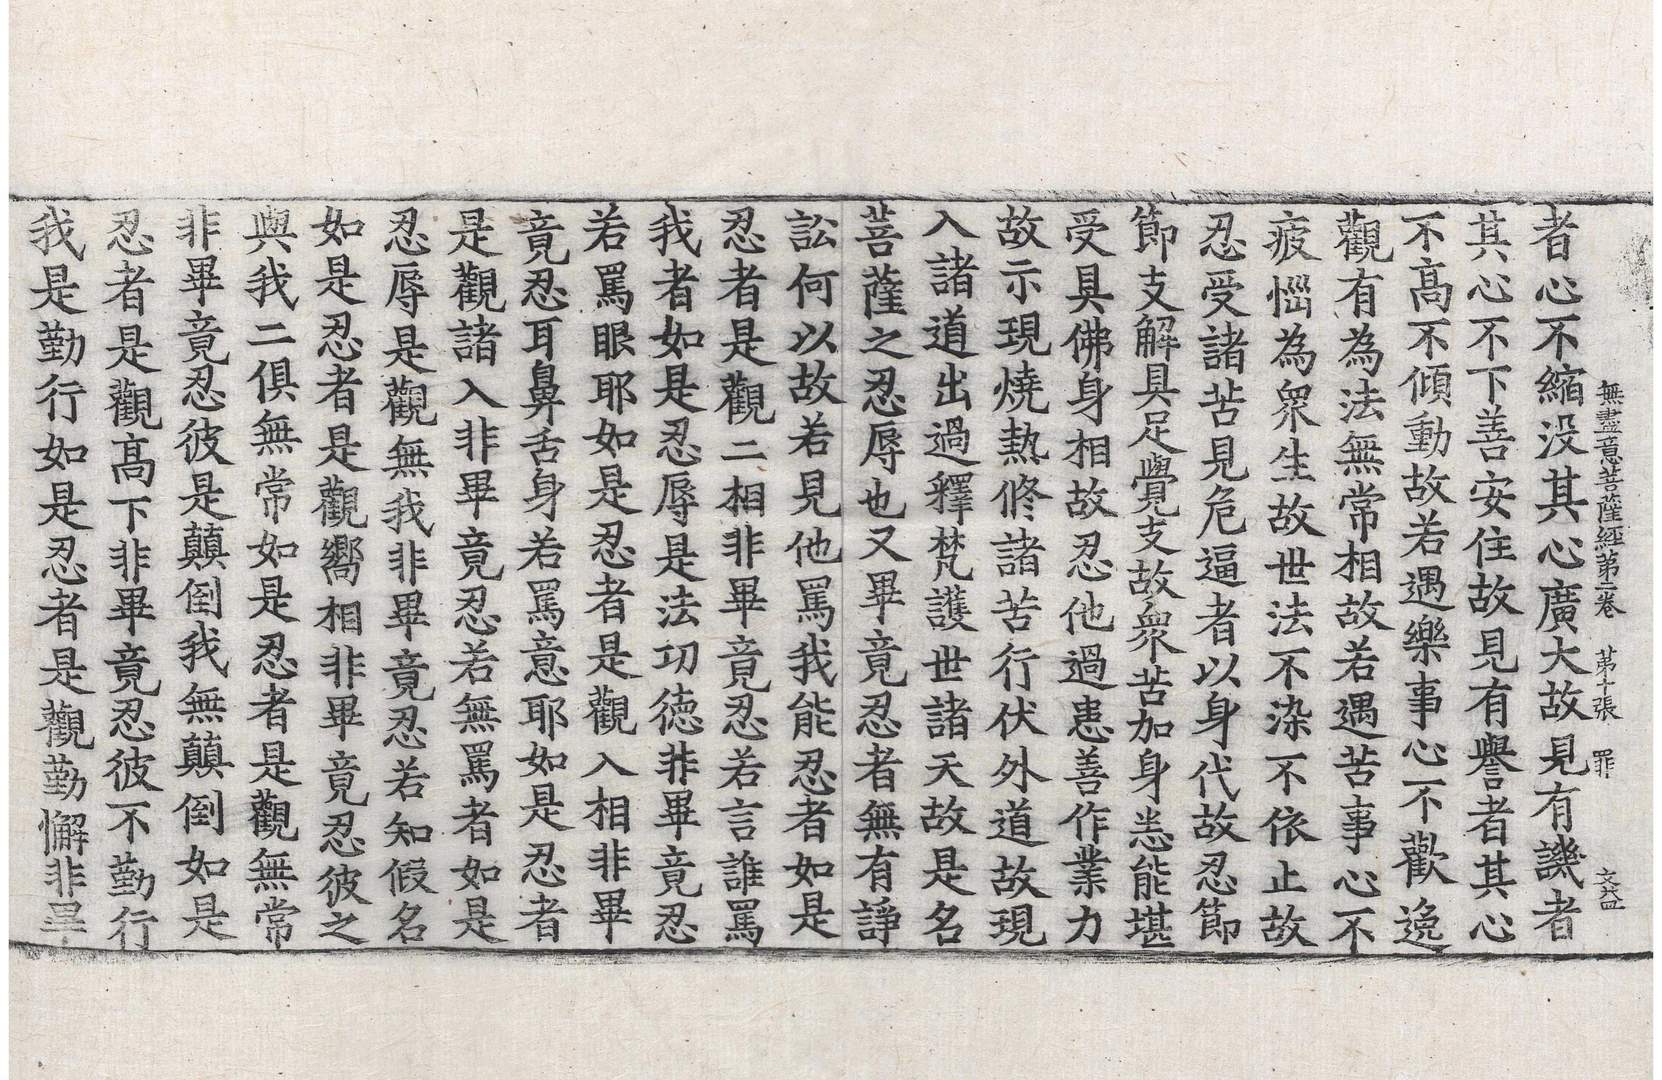 無盡意菩薩經第二卷　第十張　罪
者心不縮没其心廣大故見有譏者
其心不下善安住故見有譽者其心
不髙不傾動故若遇樂事心不歡逸
觀有為法無常相故若遇苦事心不
疲惱為衆生故世法不染不依止故
忍受諸苦見危逼者以身代故忍節
節支解具足覺支故衆苦加身悉能堪
受具佛身相故忍他過患善作業力
故示現燒熱修諸苦行伏外道故現
入諸道出過釋梵護世諸天故是名
菩薩之忍辱也又畢竟忍者無有諍
訟何以故若見他罵我能忍者如是
忍者是觀二相非畢竟忍若言誰罵
我者如是忍辱是法功德非畢竟忍
若罵眼耶如是忍者是觀入相非畢
竟忍耳鼻舌身若罵意耶如是忍者
是觀諸入非畢竟忍若無罵者如是
忍辱是觀無我非畢竟忍若知假名
如是忍者是觀嚮相非畢竟忍彼之
與我二俱無常如是忍者是觀無常
非畢竟忍彼是顛倒我無顛倒如是
忍者是觀髙下非畢竟忍彼不勤行
我是勤行如是忍者是觀勤懈非畢